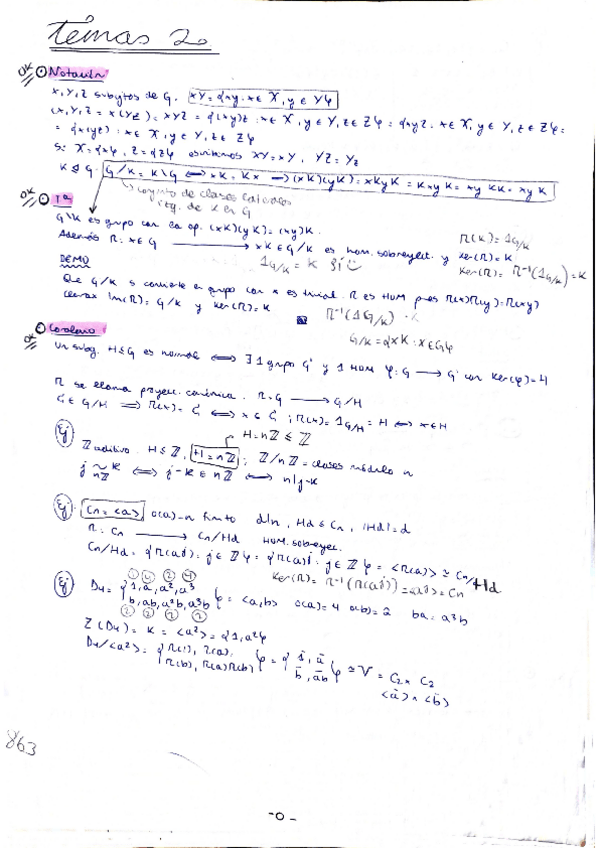 temas 2.
OK Notación
X, Y, Z subcjtos de G. XY = {xy : x ∈ X, y ∈ Y}
(X, Y, Z = X(YZ) = XYZ = {(xy)z : x ∈ X, y ∈ Y, z ∈ Z} = {xyz : x ∈ X, y ∈ Y, z ∈ Z} =
= {x(yz) : x ∈ X, y ∈ Y, z ∈ Z}
Si X = {x}, Z = {z} escribimos XY = xY, YZ = Yz
K ⊴ G. G/K = K\G ⟺ xK = Kx → (xK)(yK) = xKyK = KxyK = xy KK = xy K
conjunto de clases laterales
izq. de K en G
OK Tª
G\K es grupo con la op. (xK)(yK) = (xy)K.
π(K) = 1G/K
Además π: x ∈ G → xK ∈ G/K es hom. sobreyect. y ker(π) = K.
1G/K = K
Ker(π) = π⁻¹(1G/K) = K
DEMO
Que G/K s convierte en grupo con x es trivial. π es HOM pues π(x)π(y) = π(xy)
Im(π) = G/K y ker(π) = K
π⁻¹(1G/K) = K
G/K = {xK : x ∈ G}
OK Corolario
Un subg. H ≤ G es normal ⟺ ∃ 1 grupo G' y 1 HOM φ: G → G' con Ker(φ) = H
π se llama proyec. canónica. π: G → G/H
ζ ∈ G/H ⟹ π(x) = ζ ⟺ x ∈ ζ ; π(x) = 1G/H = H ⟺ x ∈ H
H = nℤ ≤ ℤ
Ej ℤ aditivo. H ≤ ℤ, H = nℤ ; ℤ/nℤ = clases módulo n
j ~ K ⟺ j - K ∈ nℤ ⟺ n|j-K
nℤ
Ej Cn = <a> o(a) = n finito d|n, Hd ≤ Cn, |Hd| = d
π: Cn → Cn/Hd hom. sobreyec.
Cn/Hd = {π(aʲ) : j ∈ ℤ} = {π(a)ʲ : j ∈ ℤ} = <π(a)> ≅ Cn/Hd
Ej 1 4 2 4
D4 = {1, a, a², a³
b, ab, a²b, a³b} = <a, b> o(a) = 4 o(b) = 2 ba = a³b
2 2 2 2
Z(D4) = K = <a²> = {1, a²}
D4/<a²> = {π(1), π(a),
π(b), π(a)π(b)} = {1̄, ā, b̄, āb̄} ≅ V = C2 × C2
<ā> × <b̄>
863
- 0 -